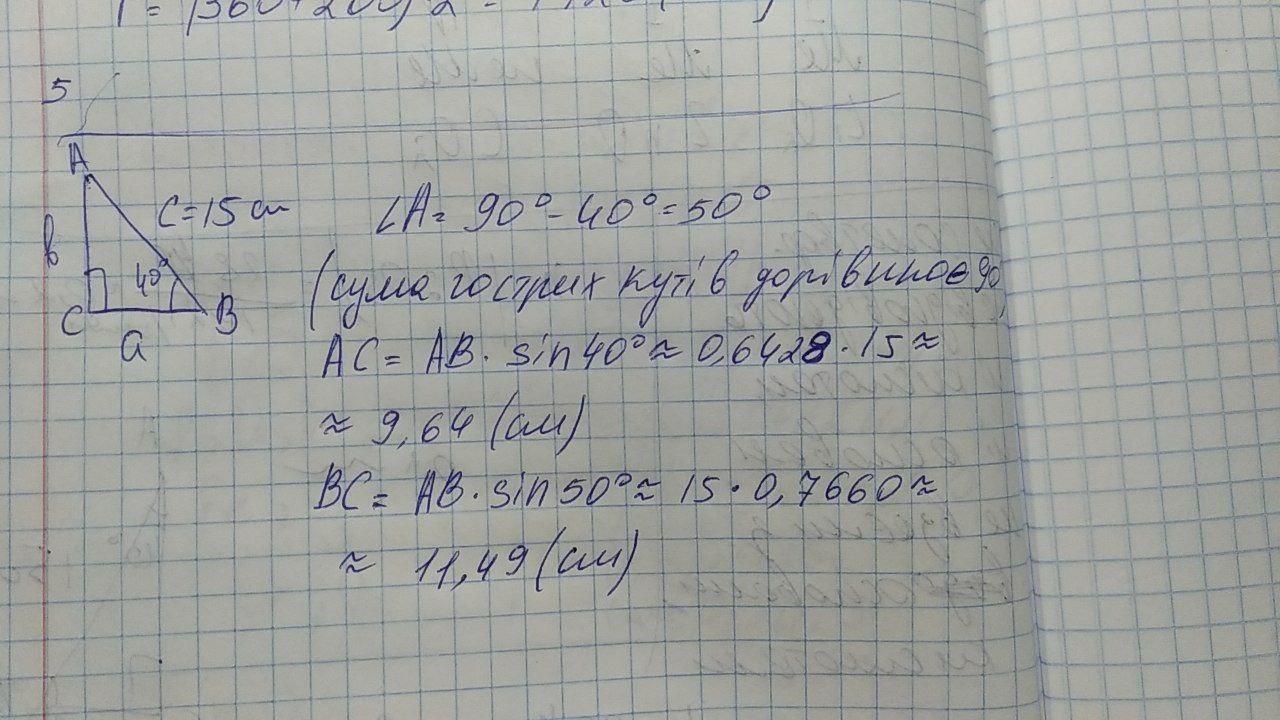 5
A
C=15 см
∠A= 90°-40°=50°
в
40°
(сума гострих кутів дорівнює 90)
C
B
a
AC= AB· sin40°≈ 0,6428·15≈
≈ 9,64 (см)
BC= AB·sin50°≈ 15·0,7660≈
≈ 11,49 (см)